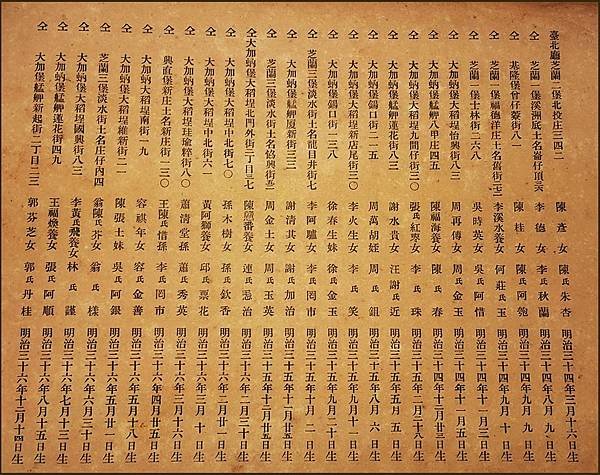 臺北廳芝蘭二堡北投庄三四二 陳彥女 陳氏朱杏 明治三十四年三月十六日生
仝 芝蘭一堡溪洲底土名崙仔頂 李德女 李氏秋蘭 明治三十四年八月九日生
仝 基隆堡曾仔藔街八一 陳桂女 陳氏阿匏 明治三十四年九月九日生
仝 芝蘭一堡福德洋庄土名舊街 李溪水養女 何莊氏玉 明治三十四年九月十日生
仝 芝蘭一堡士林街二六八 吳時英女 吳氏阿惜 明治三十四年十一月二日生
仝 大加蚋堡大稻埕怡興街八三 周再傳女 周氏金玉 明治三十四年十一月五日生
仝 大加蚋堡艋舺八甲庄四五 陳福海養女 陳氏春 明治三十四年十二月廿三日生
仝 大加蚋堡大稻埕九間仔街二〇 張氏紅寥女 李氏珠 明治三十五年二月二十八日生
仝 大加蚋堡艋舺蓮花街八三 謝水貴女 汪謝氏近 明治三十五年五月五日生
仝 大加蚋堡錫口街二一五 周萬胡姪 周氏鉬 明治三十五年八月六日生
仝 大加蚋堡大稻埕新店尾街三〇 李火生女 李氏笑 明治三十五年九月一日生
仝 大加蚋堡錫口街一三八 徐春生妹 徐氏金玉 明治三十五年九月二十日生
仝 芝蘭三堡淡水街土名龍目井街七 李阿驢女 李氏罔市 明治三十五年九月二日生
仝 大加蚋堡艋舺廈新街三三 謝清其女 謝氏加治 明治三十五年十二月十一日生
仝 芝蘭三堡淡水街土名協興街 周金土女 周氏玉英 明治三十五年十二月廿五日生
仝 大加蚋堡大稻埕北門外街二丁目二七 陳番養女 連氏忌治 明治三十六年二月三十日生
仝 大加蚋堡大稻埕中北街七〇 孫木樹女 孫氏欽香 明治三十六年二月五日生
仝 大加蚋堡大稻埕中北街六 黃阿獅養女 邱氏票花 明治三十六年三月十日生
仝 大加蚋堡大稻埕珪瑜粹街八〇 蕭清堂孫 蕭氏秀英 明治三十六年三月廿日生
仝 興直堡新庄土名新庄街一三〇 王陳氏惜孫 李氏罔市 明治三十六年三月十六日生
仝 大加蚋大稻埕南街一九 容祺年女 容氏金善 明治三十六年四月廿五日生
仝 大加蚋堡大稻埕維新街二一 陳張土妹 吳氏阿銀 明治三十六年五月十八日生
仝 芝蘭三堡淡水街土名庄仔內四 翁陳氏芬女 翁氏樣 明治三十六年六月三十日生
仝 大加蚋堡大稻埕國興街八三 李黃氏飛養女 林氏謹 明治三十六年七月十三日生
仝 大加蚋堡艋舺蓮花街四九 王福煥養女 張氏阿順 明治三十六年八月十五日生
仝 大加堡艋舺新起街二丁目二三 郭芬芝女 郭氏丹桂 明治三十六年十二月十四日生